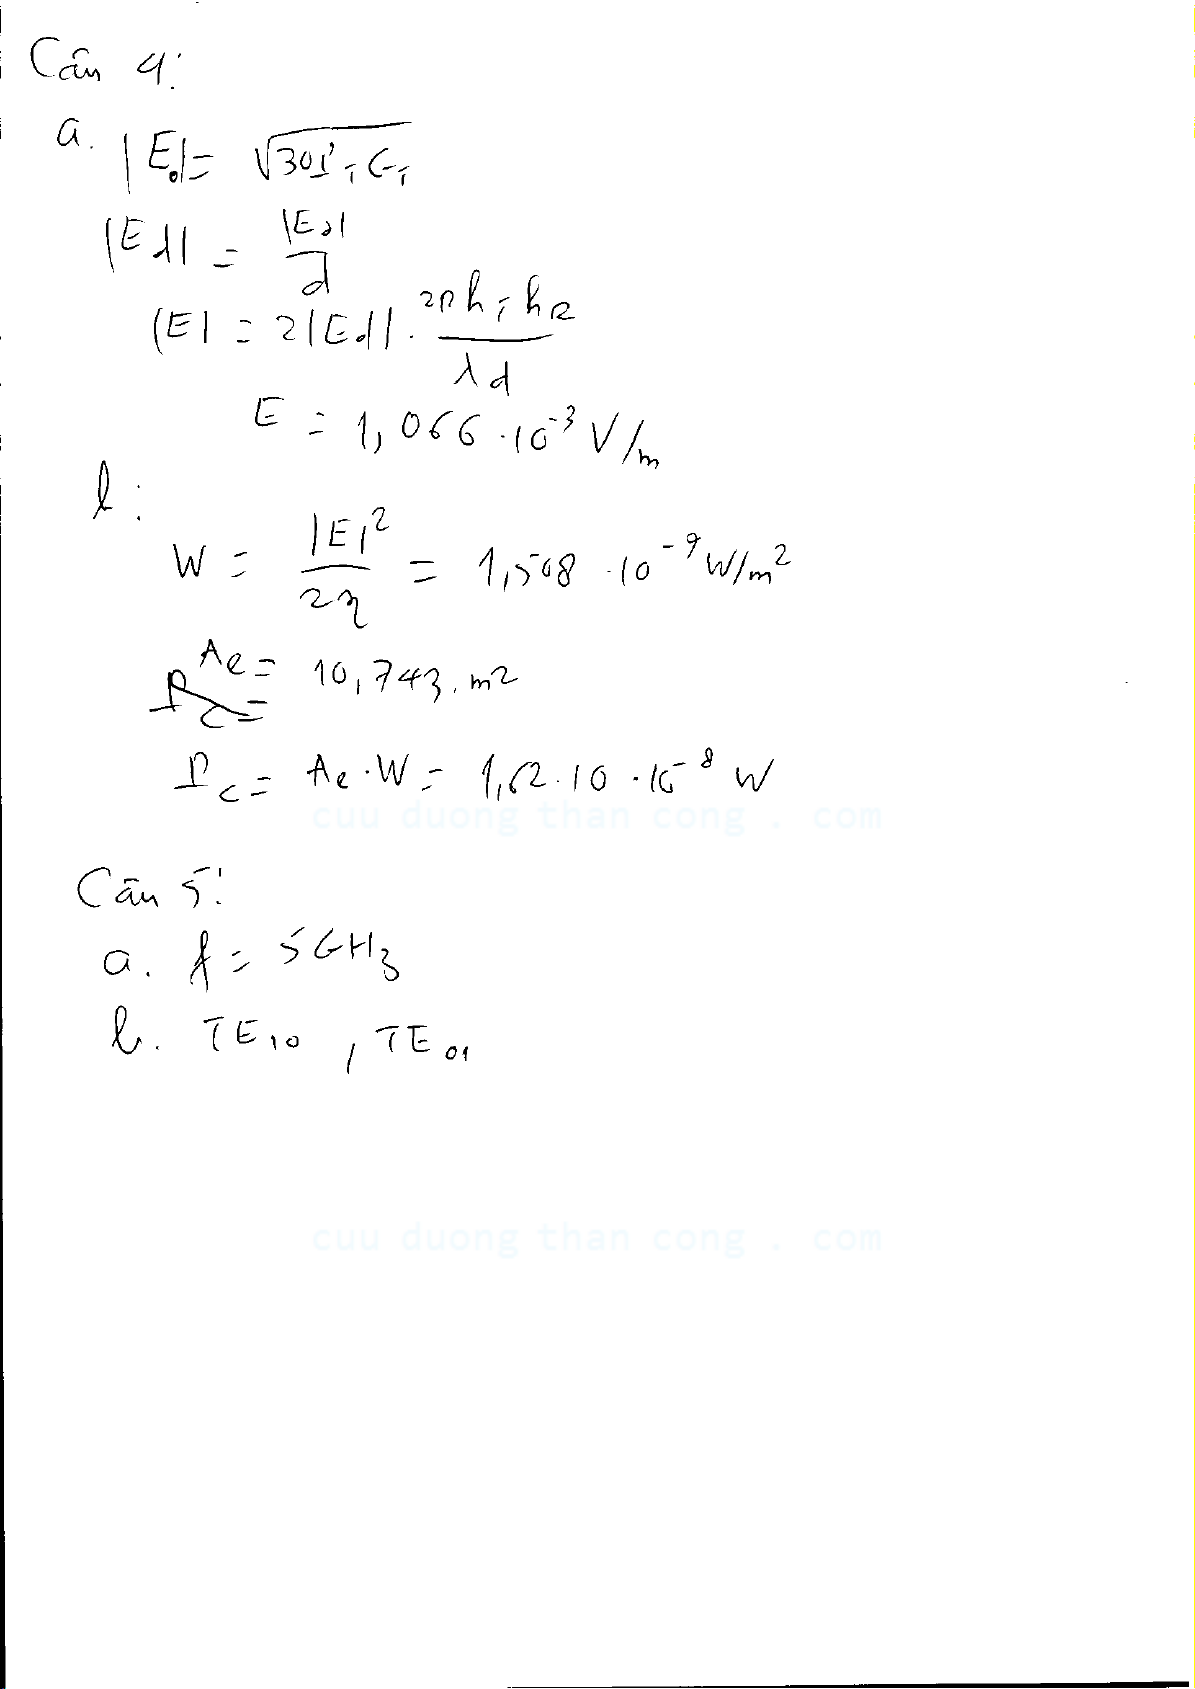 Câu 4:
a. |E₀| = √30P_T G_T
|Ed| = |E₀| / d
|E| = 2|Ed| · 2πh_T h_R / λd
E = 1,066 · 10⁻³ V/m
b:
W = |E|² / 2η = 1,508 · 10⁻⁹ W/m²
Ae = 10,743. m²
P_C =
P_C = Ae · W = 1,62 · 10 · 10⁻⁸ W
cuu duong than cong . com
Câu 5:
a. f = 5GHz
b. TE₁₀ , TE₀₁
cuu duong than cong . com